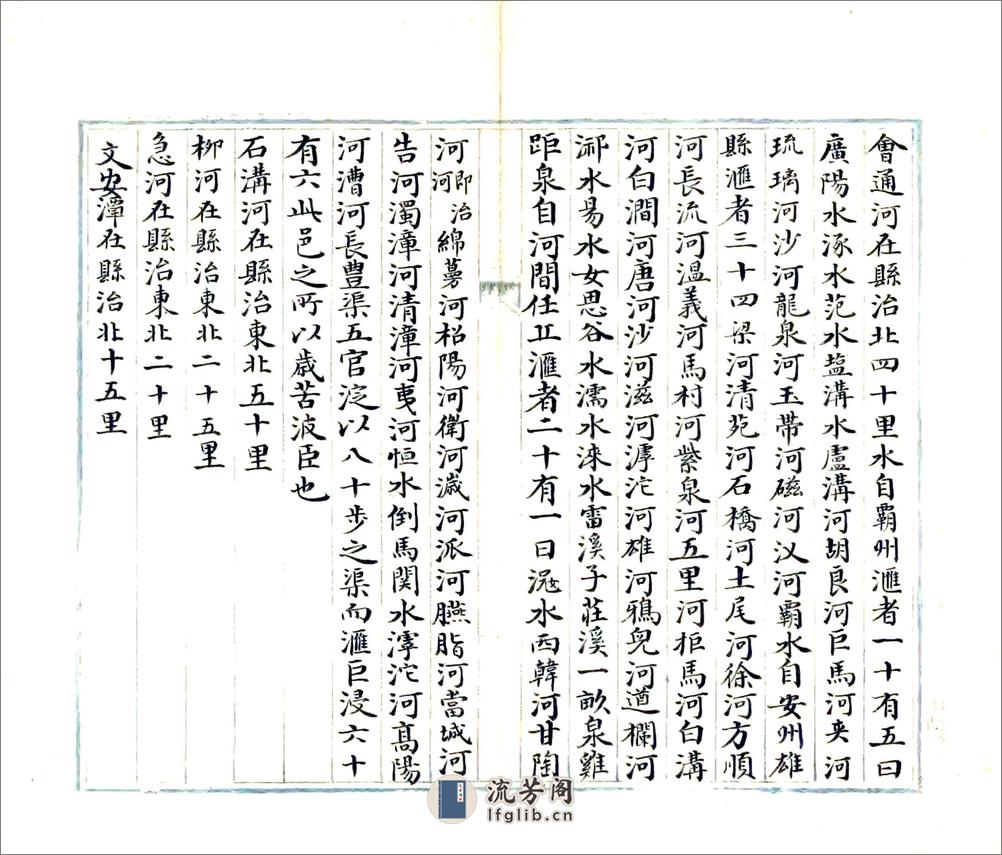 會通河在縣治北四十里水自霸州滙者一十有五曰
廣陽水涿水范水盐溝水盧溝河胡良河巨馬河夹河
琉璃河沙河龍泉河玉帶河磁河汊河霸水自安州雄
縣滙者三十四梁河清苑河石橋河土尾河徐河方順
河長流河温義河馬村河紫泉河五里河柜馬河白溝
河白澗河唐河沙河滋河滹沱河雄河鴉兒河道欄河
㴆水易水女思谷水濡水淶水雷溪子莊溪一畝泉雞
距泉自河間任丘滙者二十有一曰滱水西韓河甘陶
河即冶河綿蔓河松陽河衛河滅河派河臙脂河當城河
告河濁漳河清漳河夷河恒水倒馬関水滹沱河高陽
河漕河長豊渠五官淀以八十步之渠而滙巨浸六十
有六此邑之所以歳苦波臣也
石溝河在縣治東北五十里
柳河在縣治東北二十五里
急河在縣治東北二十里
文安潭在縣治北十五里
流芳阁
lfglib.cn